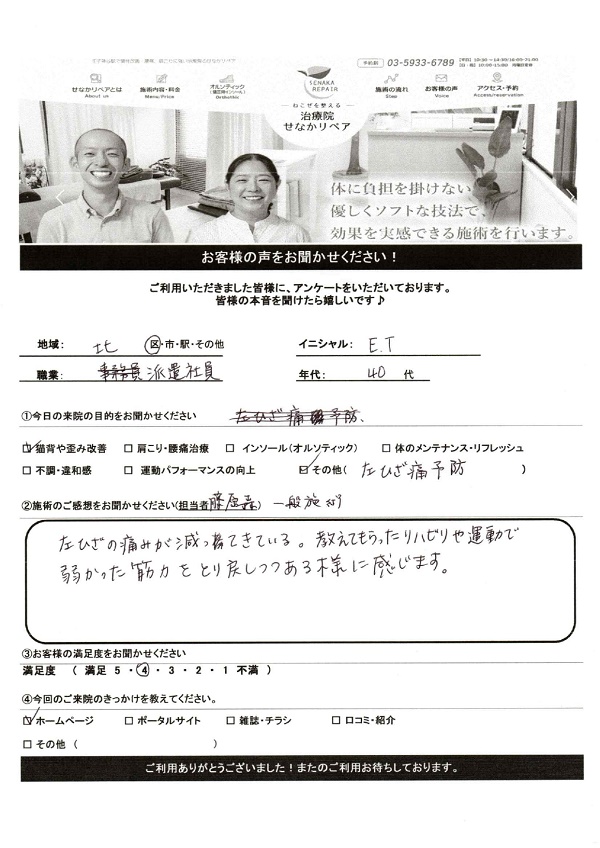 予約制 03-5933-6789 【平日】10:30～14:30/16:00-21:00
せなかリペアとは 施術内容・料金 オルソティック SENAKA REPAIR 施術の流れ お客様の声 アクセス・予約
About us Menu/Price (矯正用インソール) Step Voice Access/reservation
Orthothic
ねこぜを整える
治療院
せなかリペア
体に負担を掛けない
優しくソフトな技法で、
効果を実感できる施術を行います。
お客様の声をお聞かせください！
ご利用いただきました皆様に、アンケートをいただいております。
皆様の本音を聞けたら嬉しいです♪
地域： 北 区・市・駅・その他 イニシャル： E.T
職業： 事務員 派遣社員 年代： 40 代
①今日の来院の目的をお聞かせください 左ひざ痛 予防、
☑猫背や歪み改善 □ 肩こり・腰痛治療 □ インソール（オルソティック） □ 体のメンテナンス・リフレッシュ
□ 不調・違和感 □ 運動パフォーマンスの向上 ☑その他（ 左ひざ痛予防 ）
②施術のご感想をお聞かせください（担当者 藤原森） 一般施術
左ひざの痛みが減ってきている。教えてもらったリハビリや運動で
弱かった筋力をとり戻しつつある様に感じます。
③お客様の満足度をお聞かせください
満足度 （ 満足 5 ・ 4 ・ 3 ・ 2 ・ 1 不満 ）
④今回のご来院のきっかけを教えてください。
☑ホームページ □ ポータルサイト □ 雑誌・チラシ □ 口コミ・紹介
□ その他（ ）
ご利用ありがとうございました！またのご利用お待ちしております。